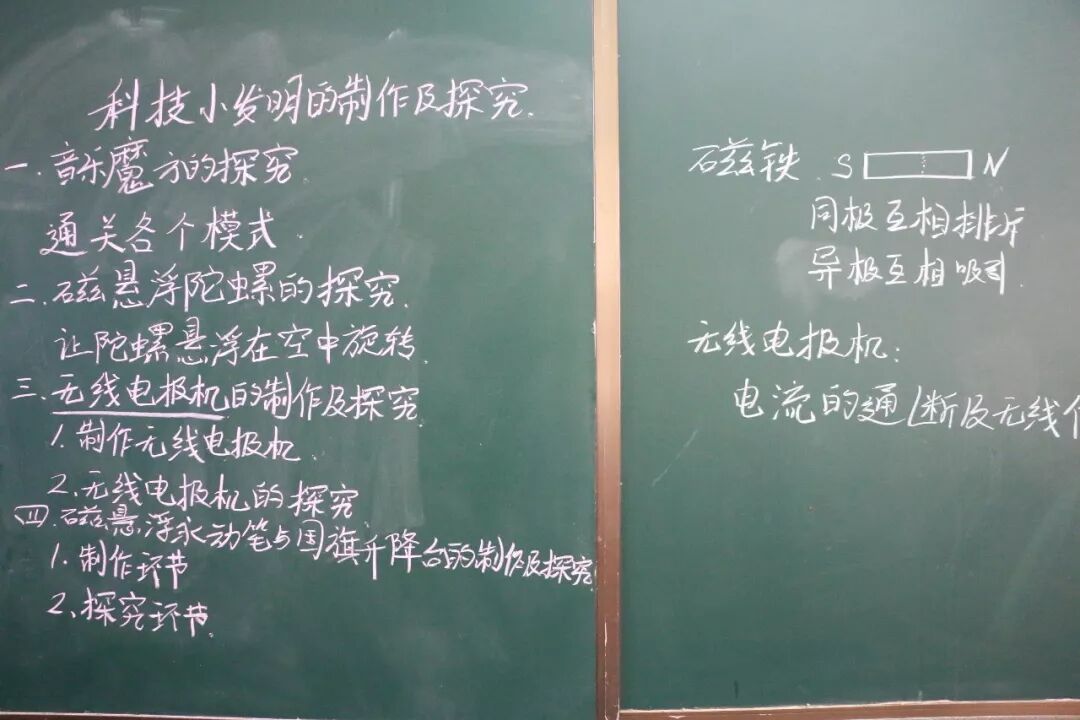 科技小发明的制作及探究.
一.音乐魔方的探究.
通关各个模式.
二.磁悬浮陀螺的探究.
让陀螺悬浮在空中旋转.
三.无线电报机的制作及探究.
1.制作无线电报机.
2.无线电报机的探究
四.磁悬浮永动笔与国旗升降台的制作及探究.
1.制作环节
2、探究环节.
磁铁. S N
同极互相排斥
异极互相吸引.
无线电报机:
电流的通断及无线